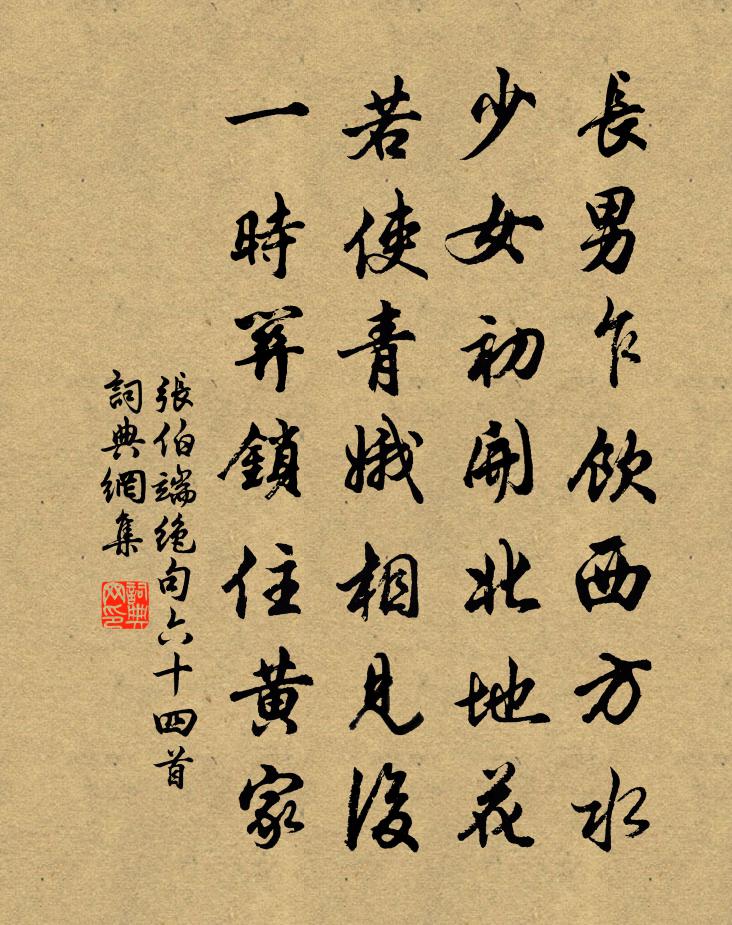 長男乍飲西方水
少女初開北地花
若使青娥相見後
一時筭鎖住黃家
張伯端絶句六十四首
詞典網集
詞典
网印